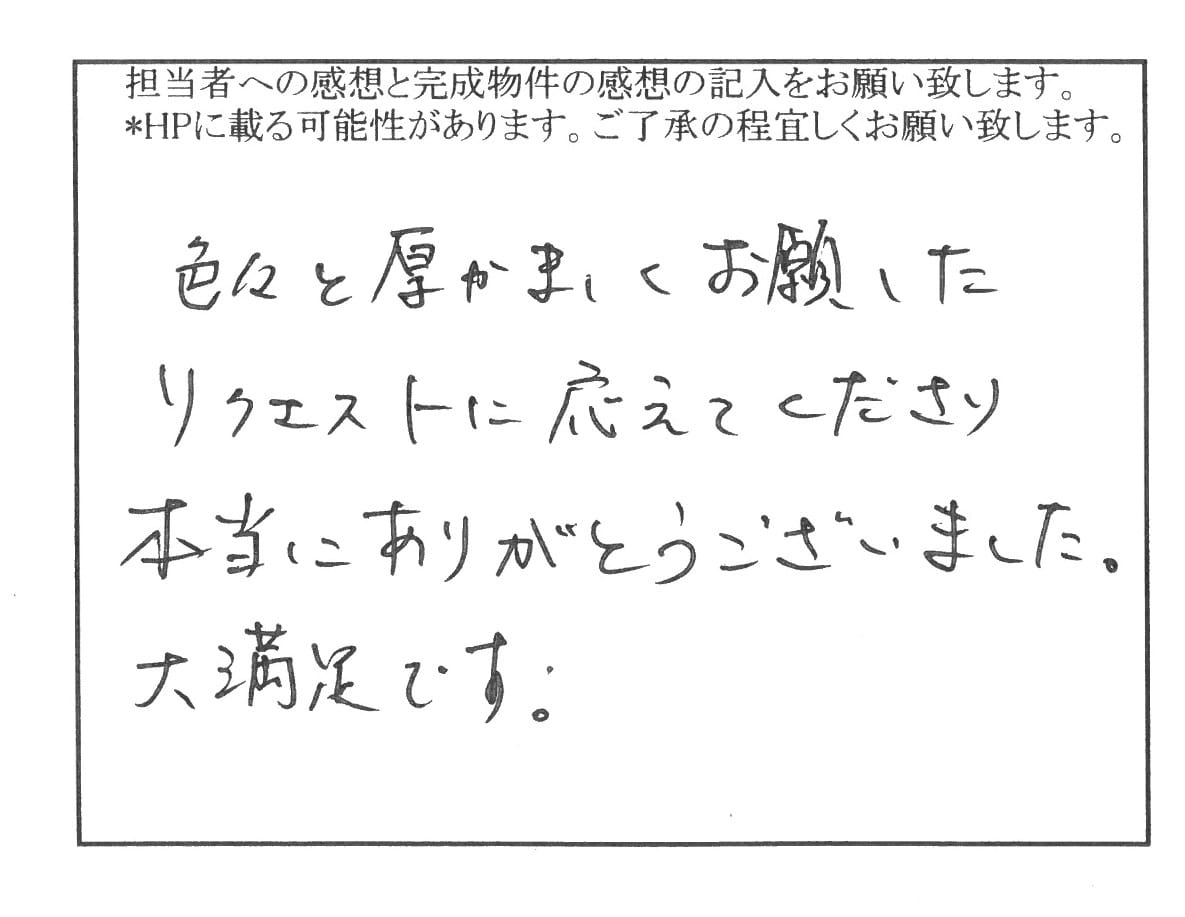 担当者への感想と完成物件の感想の記入をお願い致します。
*HPに載る可能性があります。ご了承の程宜しくお願い致します。
色々と厚かましくお願した
リクエストに応えてくださり
本当にありがとうございました。
大満足です。